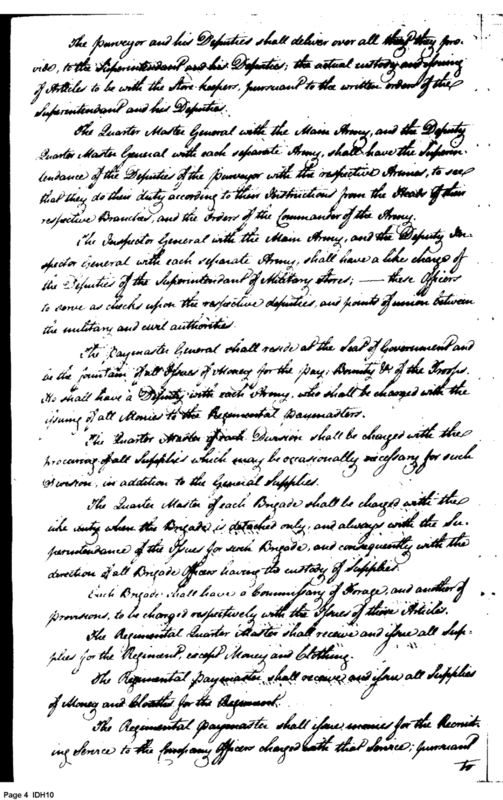 The Purveyor and his Deputies shall deliver over all they pro-
vide, to the Superintendant and his Deputies; the actual custody and issuing
of Articles to be with the Store-keepers, pursuant to the written orders of the
Superintendant and his Deputies.
The Quarter Master General with the Main Army, and the Deputy
Quarter Master General with each separate Army, shall have the Superin-
tendance of the Deputies of the Purveyor with the respective Armies, to see
that they do their duty according to their Instructions from the Heads of their
respective Branches, and the Orders of the Commander of the Army.
The Inspector General with the Main Army, and the Deputy In-
spector General with each separate Army, shall have a like charge of
the Deputies of the Superintendant of Military Stores; — these Officers
to serve as checks upon the respective deputies, and points of union between
the military and civil authorities.
The Paymaster General shall reside at the Seat of Government and
be the fountain of all Issues of Money for the pay, Bounty &c of the Troops.
He shall have a Deputy with each Army, who shall be charged with the
issuing of all Monies to the Regimental Paymasters.
The Quarter Master of each Division shall be charged with the
procuring of all Supplies which may be occasionally necessary for such
Division, in addition to the General Supplies.
The Quarter Master of each Brigade shall be charged with the
like duty when the Brigade is detached only, and always with the Su-
perintendance of the Issues for such Brigade, and consequently with the
direction of all Brigade Officers having the custody of Supplies.
Each Brigade shall have a Commissary of Forage, and another of
provisions, to be charged respectively with the Issues of those Articles.
The Regimental Quarter Master shall receive and issue all Sup-
plies for the Regiment, except Money and Clothing.
The Regimental Paymaster shall receive and issue all Supplies
of Money and Clothes for the Regiment.
The Regimental Paymaster shall issue monies for the Recruit-
ing Service to the Company Officers charged with that Service; pursuant
to
Page 4 IDH10